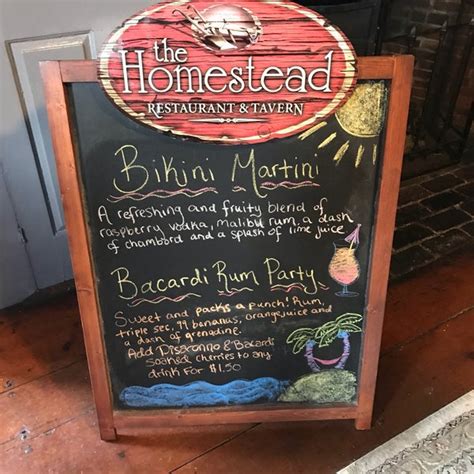 the
Homestead
RESTAURANT & TAVERN
Bikini Martini
A refreshing and fruity blend of
raspberry vodka, malibu rum, a dash
of chambord and a splash of lime juice
Bacardi Rum Party
Sweet and packs a punch! Rum,
triple sec, 99 bananas, orange juice and
a dash of grenadine.
Add Disaronno & Bacardi
soaked cherries to any
drink for $1.50